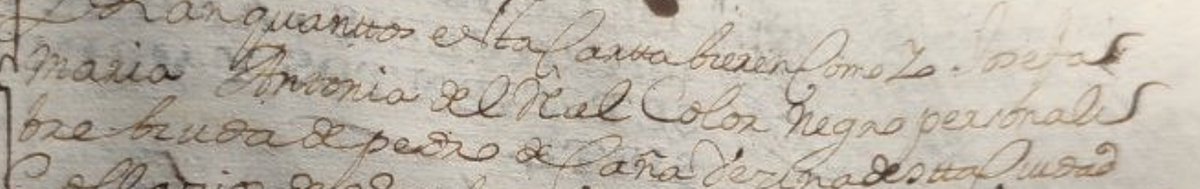 quanttos estta Cartta bieren Como Yo Josefa
Maria Antonia del Real Color Negro persona li
bre biuda de pedro de Caña Vezina destta Ciudad